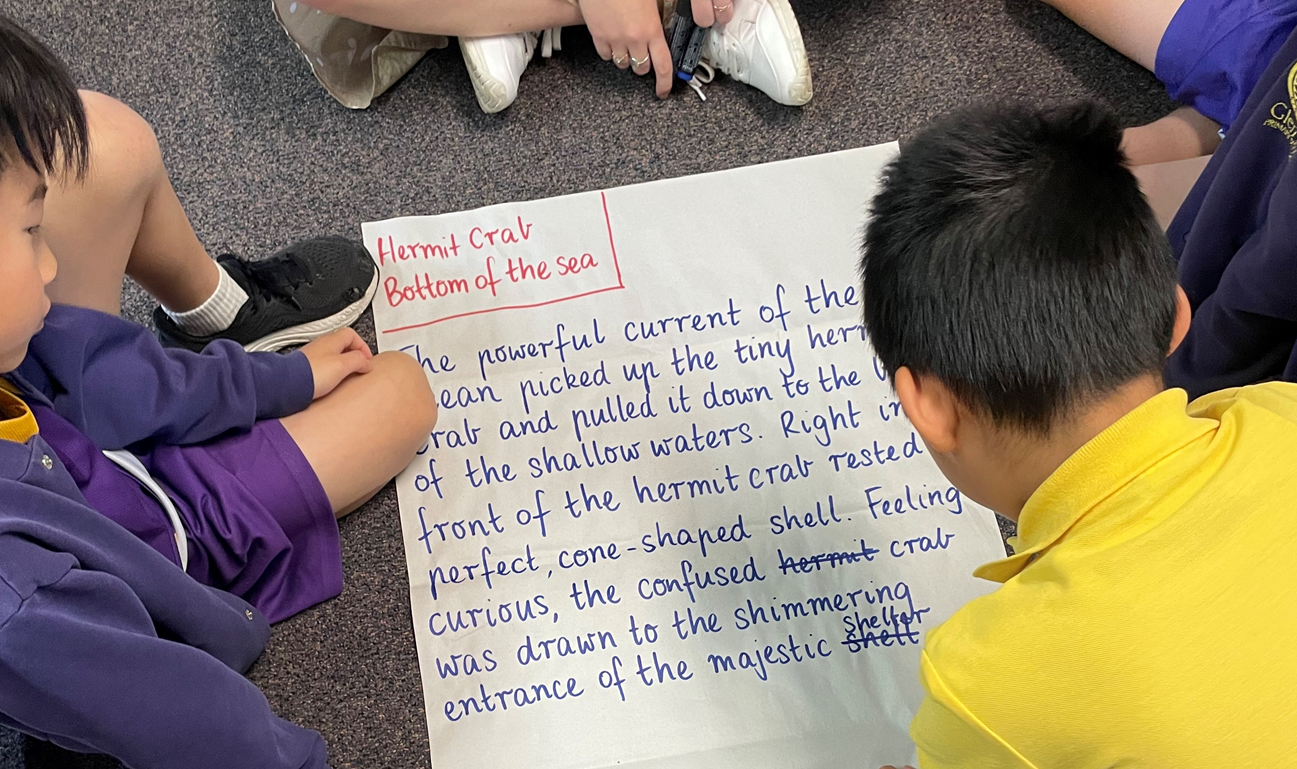 Hermit Crab
Bottom of the sea
The powerful current of the
picked up the tiny
and pulled it down to the
of the shallow waters. Right in
front of the hermit crab rested
perfect, cone-shaped shell. Feeling
curious, the confused hermit crab
was drawn to the shimmering
shelter
entrance of the majestic shell